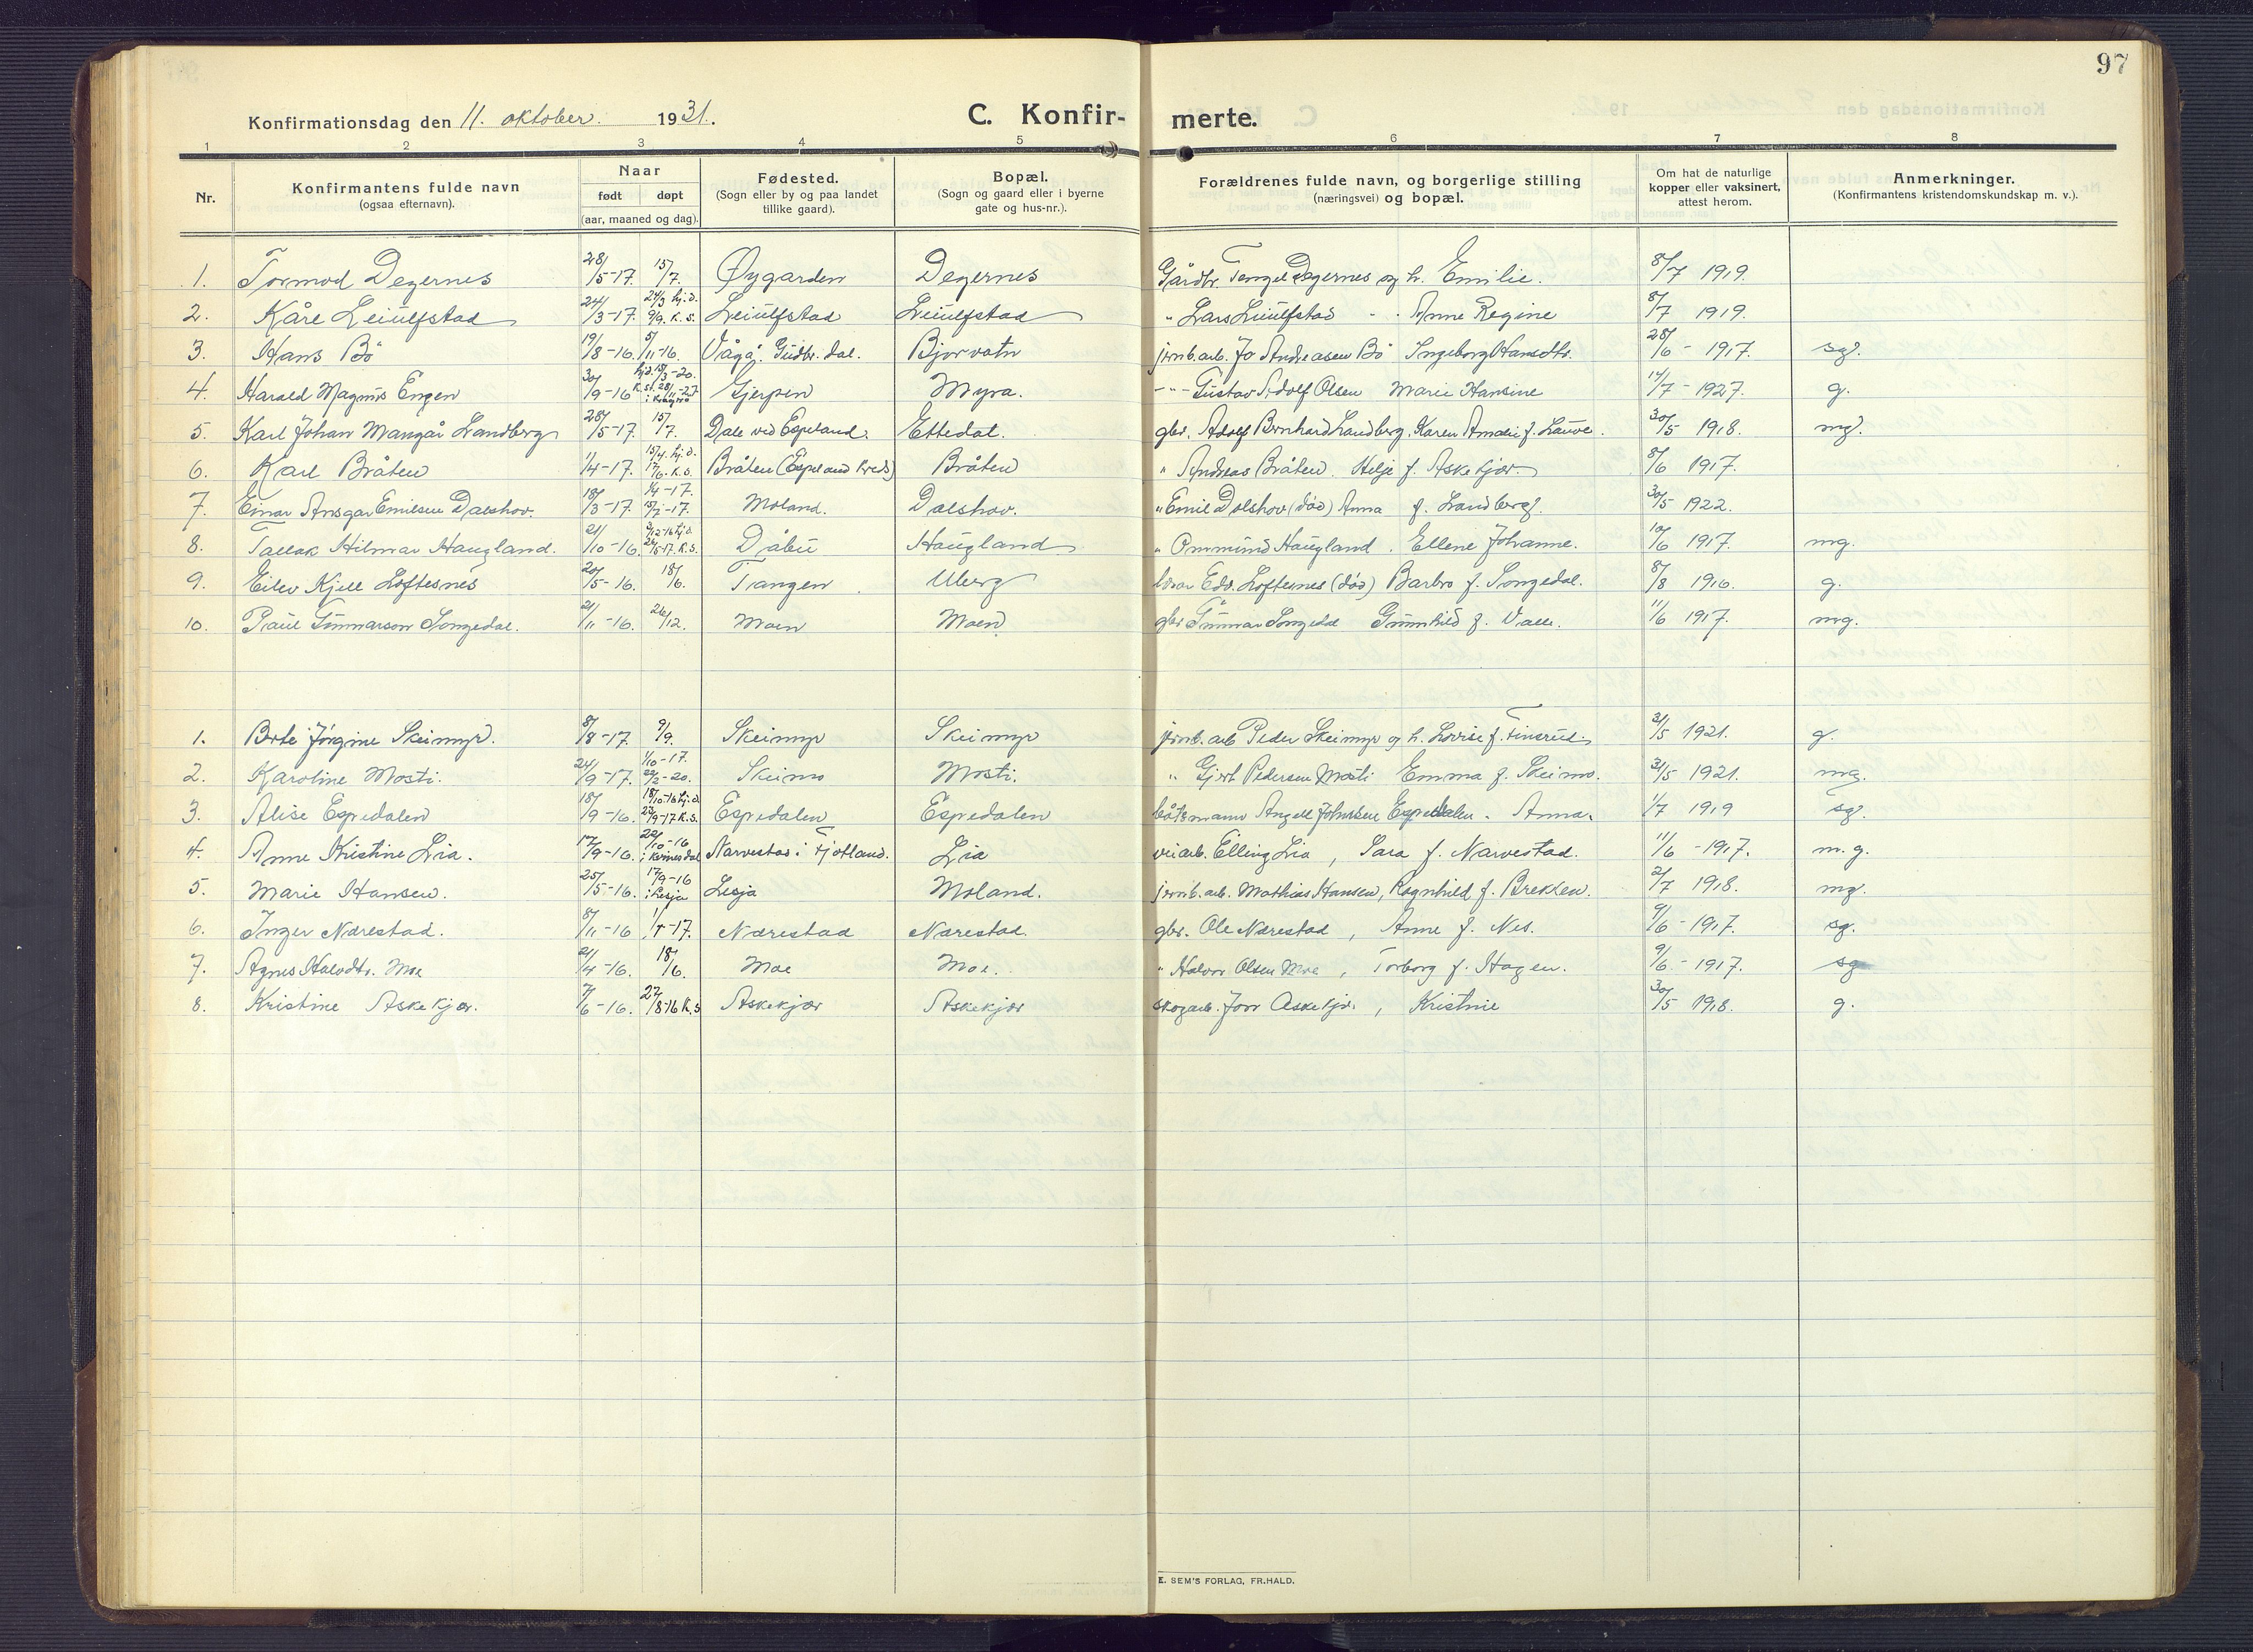 97
Konfirmationsdag den 11. oktober. 1931.
C. Konfirmerte.
1 2 3 4 5 6 7 8
Nr.
Konfirmantens fulde navn
(ogsaa efternavn).
Naar
født døpt
(aar, maaned og dag).
Fødested.
(Sogn eller by og paa landet
tillike gaard).
Bopæl.
(Sogn og gaard eller i byerne
gate og hus-nr.).
Forældrenes fulde navn, og borgerlige stilling
(næringsvei) og bopæl.
Om hat de naturlige
kopper eller vaksinert,
attest herom.
Anmerkninger.
(Konfirmantens kristendomskundskap m. v.).
1. Tormod Degernes 28/5-17. 15/7. Øygarden Degernes Gårdbr. Tengel Degernes og h. Emilie. 8/7 1919.
2. Kåre Leiulfstad 24/3-17. 24/3 hj.d. 9/9. K.S. Leiulfstad Leiulfstad " Lars Leiulfstad - - Anne Regine 8/7 1919.
3. Hans Bö 19/8-16. 5/11-16. Vågå. Gudbr. dal. Bjorvatn jernb.arb. Jo Andreasen Bö Ingeborg Hansdtr. 28/6 - 1917. sg.
4. Harald Magnus Engen 30/9-16 hj.d. 18/3-20. K.st. 28/11-27 i Kragerø Gjerpen Myra. -"- Gustav Adolf Olsen Marie Hansine 14/7 - 1927. g.
5. Karl Johan Mangår Landberg 28/5-17. 15/7. Dale ved Espeland. Ettedal. gbr. Adolf Bernhard Landberg. Karen Amalie f. Lauve. 30/5 1918. mg.
6. Karl Bråten 1/4-17. 15/4. hj.d. 17/6. K.S. Bråten (Espeland kreds) Bråten " Andreas Bråten. Helje f. Askekjær. 8/6 1917.
7. Einar Ansgar Emilsen Dalshov. 18/3-17. 1/4-17. 15/7-17. Moland. Dalshov. " Emil Dalshov (död) Anna f. Landberg. 30/5 1922.
8. Tallak Hilmar Haugland. 21/10-16. 3/12-16 hj.d. 24/5-17. K.S. Dåbu Haugland " Ommund Haugland. Ellene Johanne. 10/6 1917. mg.
9. Eilev Kjell Loftesnes 20/5-16. 18/6. Tangen Uberg Edv. Loftesnes (död) Barbro f. Songedal. 8/8 1916. g.
10. Paul Gunnarson Songedal. 21/11-16. 26/12. Moen Moen gbr. Gunnar Songedal Gunnhild f. Valle. 11/6 1917. mg.
1. Berte Jörgine Skeimyr. 8/8-17. 9/9. Skeimyr Skeimyr jernb. arb Peder Skeimyr og h. Lovise f. Finsrud. 31/5 1921. g.
2. Karoline Mosti. 24/9-17. 1/10-17. 22/2-20. Skeimo Mosti. " Gjert Pedersen Mosti Emma f. Skeimo. 31/5 1921. mg.
3. Alise Espedalen 18/9-16. 18/10-16 hj.d. 23/9-17 K.S. Espedalen Espedalen båtsmann Angell Johnsen Espedalen - Anna. 1/7 1919 sg.
4. Anne Kristine Lia. 17/9-16. 22/10-16 i Kvinesdal Narvestad i Fjotland. Lia veiarb. Elling Lia, Sara f. Narvestad. 11/6 - 1917. m.g.
5. Marie Hansen. 25/5-16. 17/9-16 i Lesja Lesja Moland. jernb. arb. Mathias Hansen, Ragnhild f. Brekken. 2/7 1918. mg.
6. Inger Nærestad. 8/11-16 1/1-17. Nærestad Nærestad. gbr. Ole Nærestad, Anne f. Nes. 9/6 - 1917. sg.
7. Agnes Halvdtr. Moe 21/4-16. 18/6. Moe Moe. " Halvor Olsen Moe, Torborg f. Hagen. 9/6 - 1917. sg
8. Kristine Askekjær. 7/6-16. 27/8-16 K.S Askekjær Askekjær skogarb. Askekjær, Kristine 30/5 1918. g.
E. SEM'S FORLAG, FR.HALD.